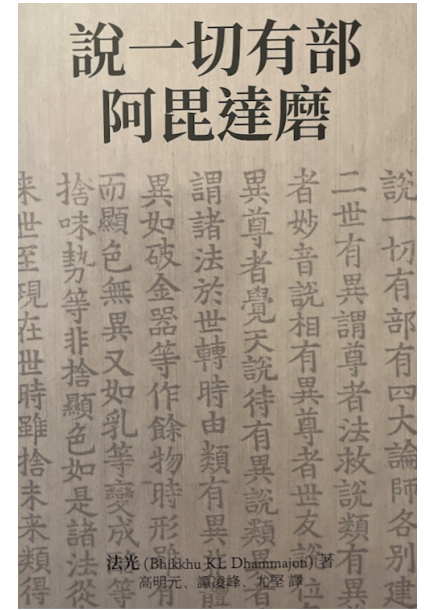 說一切有部
阿毘達磨
說一切有部有四大論師各別建
二世有異謂尊者法救說類有異
者妙音說相有異尊者世友說位
異尊者覺天說待有異說類異者
謂諸法於世轉時由類有異非體
異如破金器等作餘物時形雖有
而顯色無異又如乳等變成
捨味勢等非捨顯色如是諸法從
来世至現在世時雖捨未来類得
法光 (Bhikkhu KL Dhammajoti) 著
高明元、譚凌峰、尤堅 譯